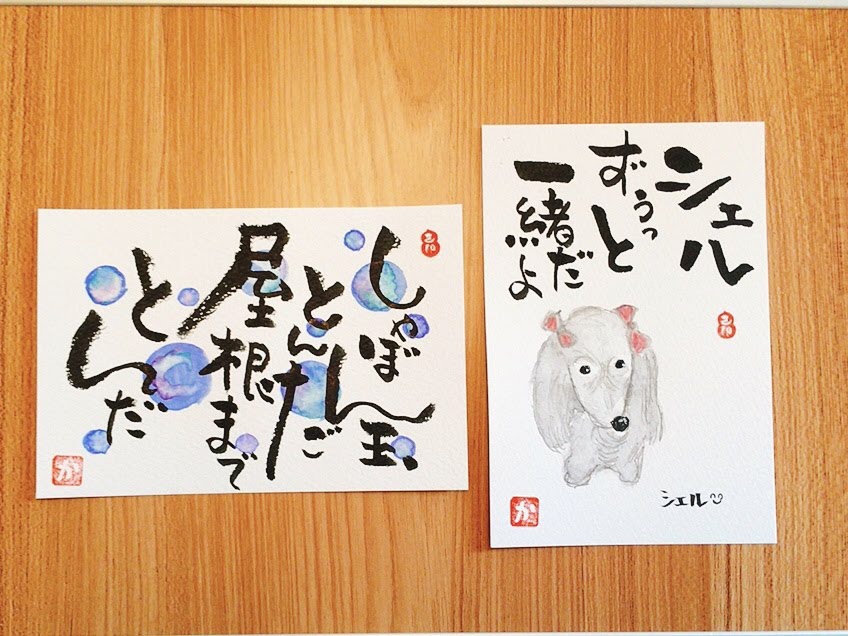 しゃぼん玉、
とんだ
屋根まで
とんだ
か
シェル
ずうっと
一緒だよ
シェル
か